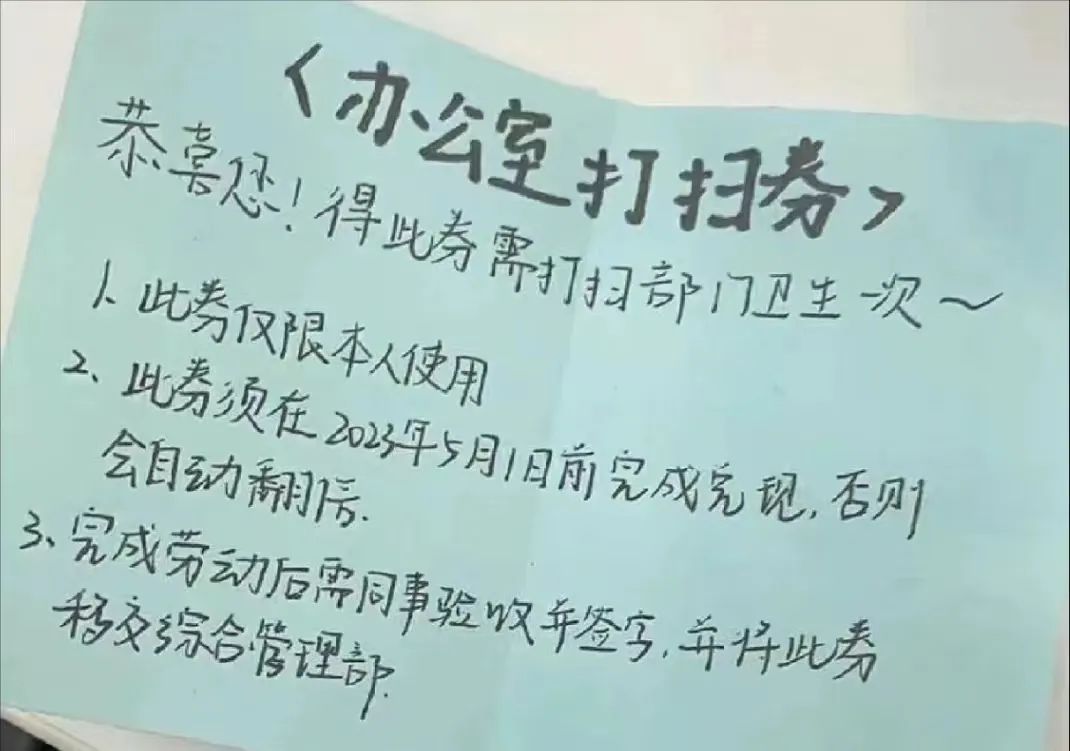 〈办公室打扫券〉
恭喜您！得此券需打扫部门卫生一次～
1、此券仅限本人使用
2、此券须在2023年5月1日前完成兑现，否则
会自动翻倍.
3、完成劳动后需同事验收并签字，并将此券
移交综合管理部.